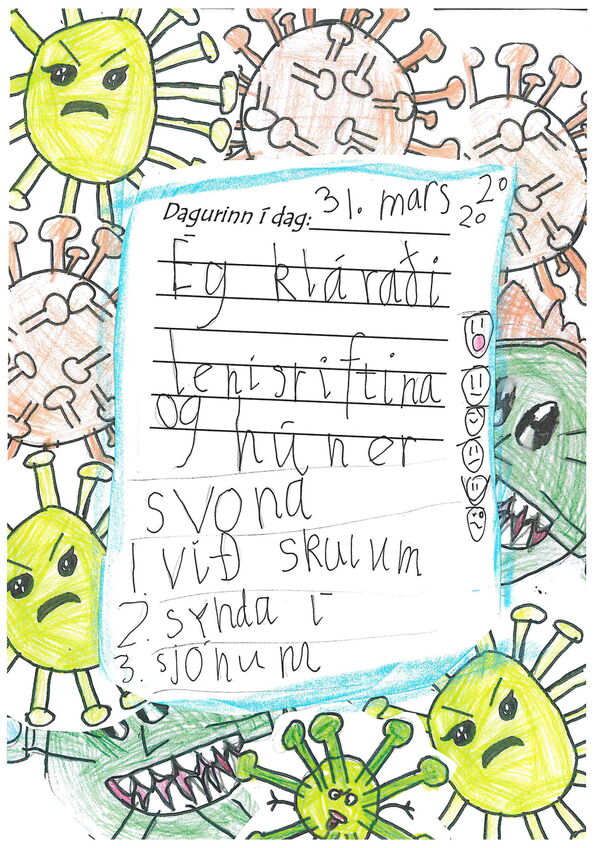 Dagurinn í dag: 31. mars 2020
Ég kláraði
lenisriftina
og hún er
svona
1. við skulum
2. synda í
3. sjónum